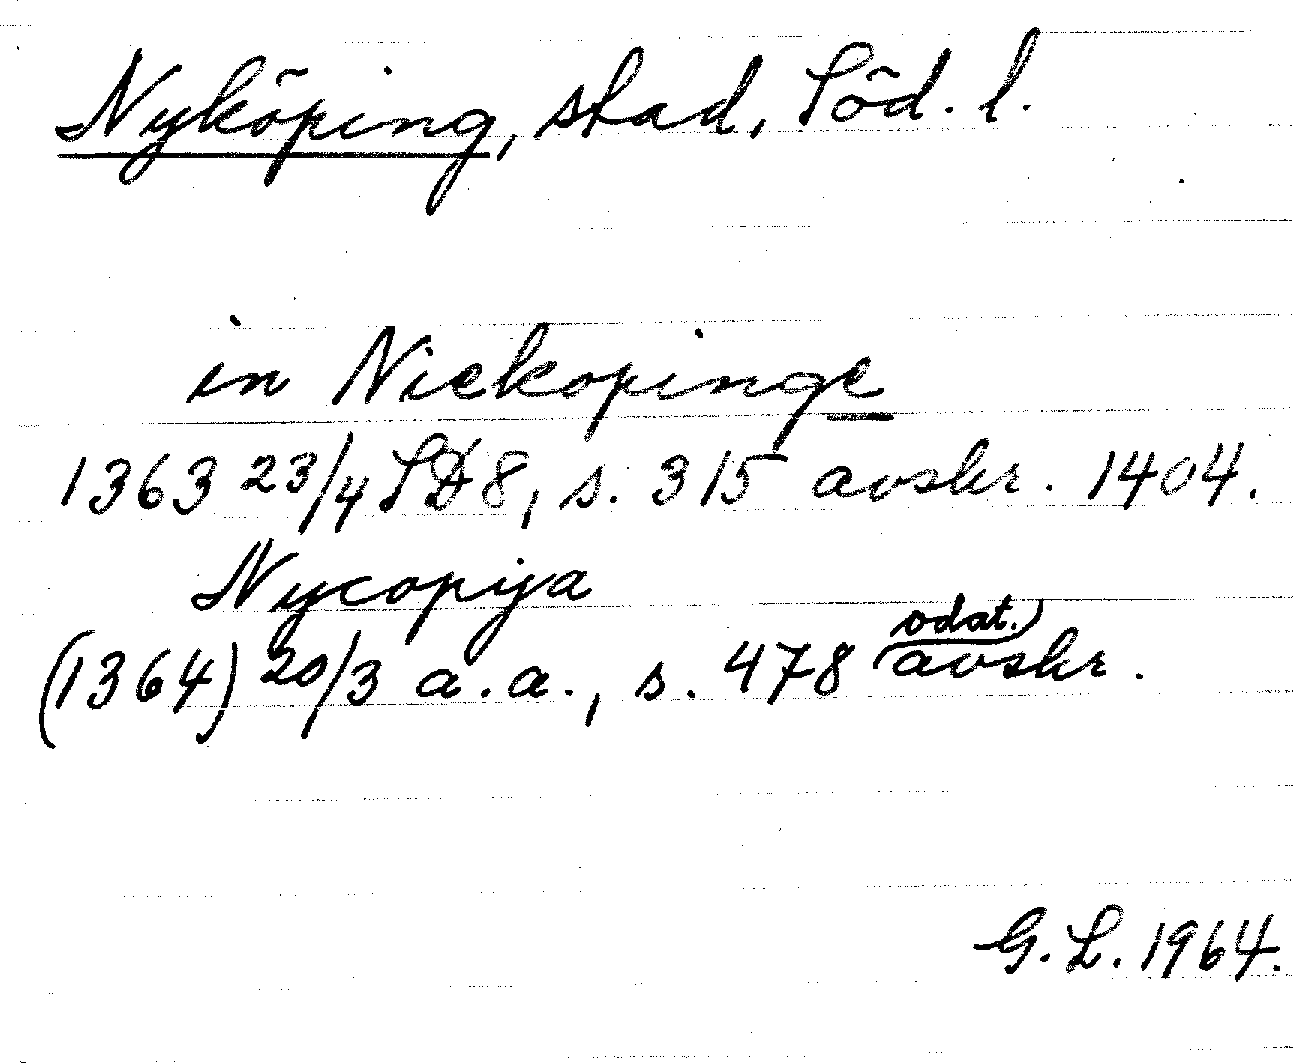 Nyköping, stad, Söd. l.
in Niekopinge
1363 23/4 SD 8, s. 315 avskr. 1404.
Nycopija
(1364) 20/3 a.a., s. 478 (odat.) avskr.
G. L. 1964.